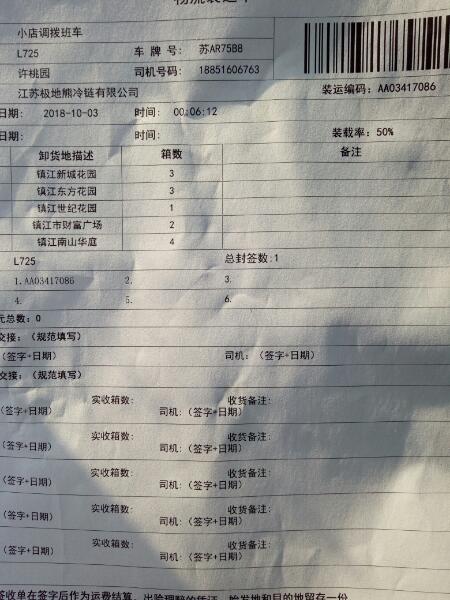 小店调拨班车
L725 车 牌 号: 苏AR75B8
许桃园 司机号码: 18851606763
江苏极地熊冷链有限公司 装运编码: AA03417086
日期: 2018-10-03 时间: 00:06:12
日期: 时间: 装载率: 50%
卸货地描述 箱数 备注
镇江新城花园 3
镇江东方花园 3
镇江世纪花园 1
镇江市财富广场 2
镇江南山华庭 4
L725 总封签数:1
1.AA03417086 2. 3.
4. 5. 6.
元总数: 0
交接: (规范填写)
(签字+日期) 司机: (签字+日期)
交接: (规范填写)
实收箱数: 收货备注:
(签字+日期) 司机: (签字+日期)
实收箱数: 收货备注:
(签字+日期) 司机: (签字+日期)
实收箱数: 收货备注:
(签字+日期) 司机: (签字+日期)
实收箱数: 收货备注:
(签字+日期) 司机: (签字+日期)
实收箱数: 收货备注:
(签字+日期) 司机: (签字+日期)
签收单在签字后作为运费结算、出险理赔的凭证，始发地和目的地留存一份